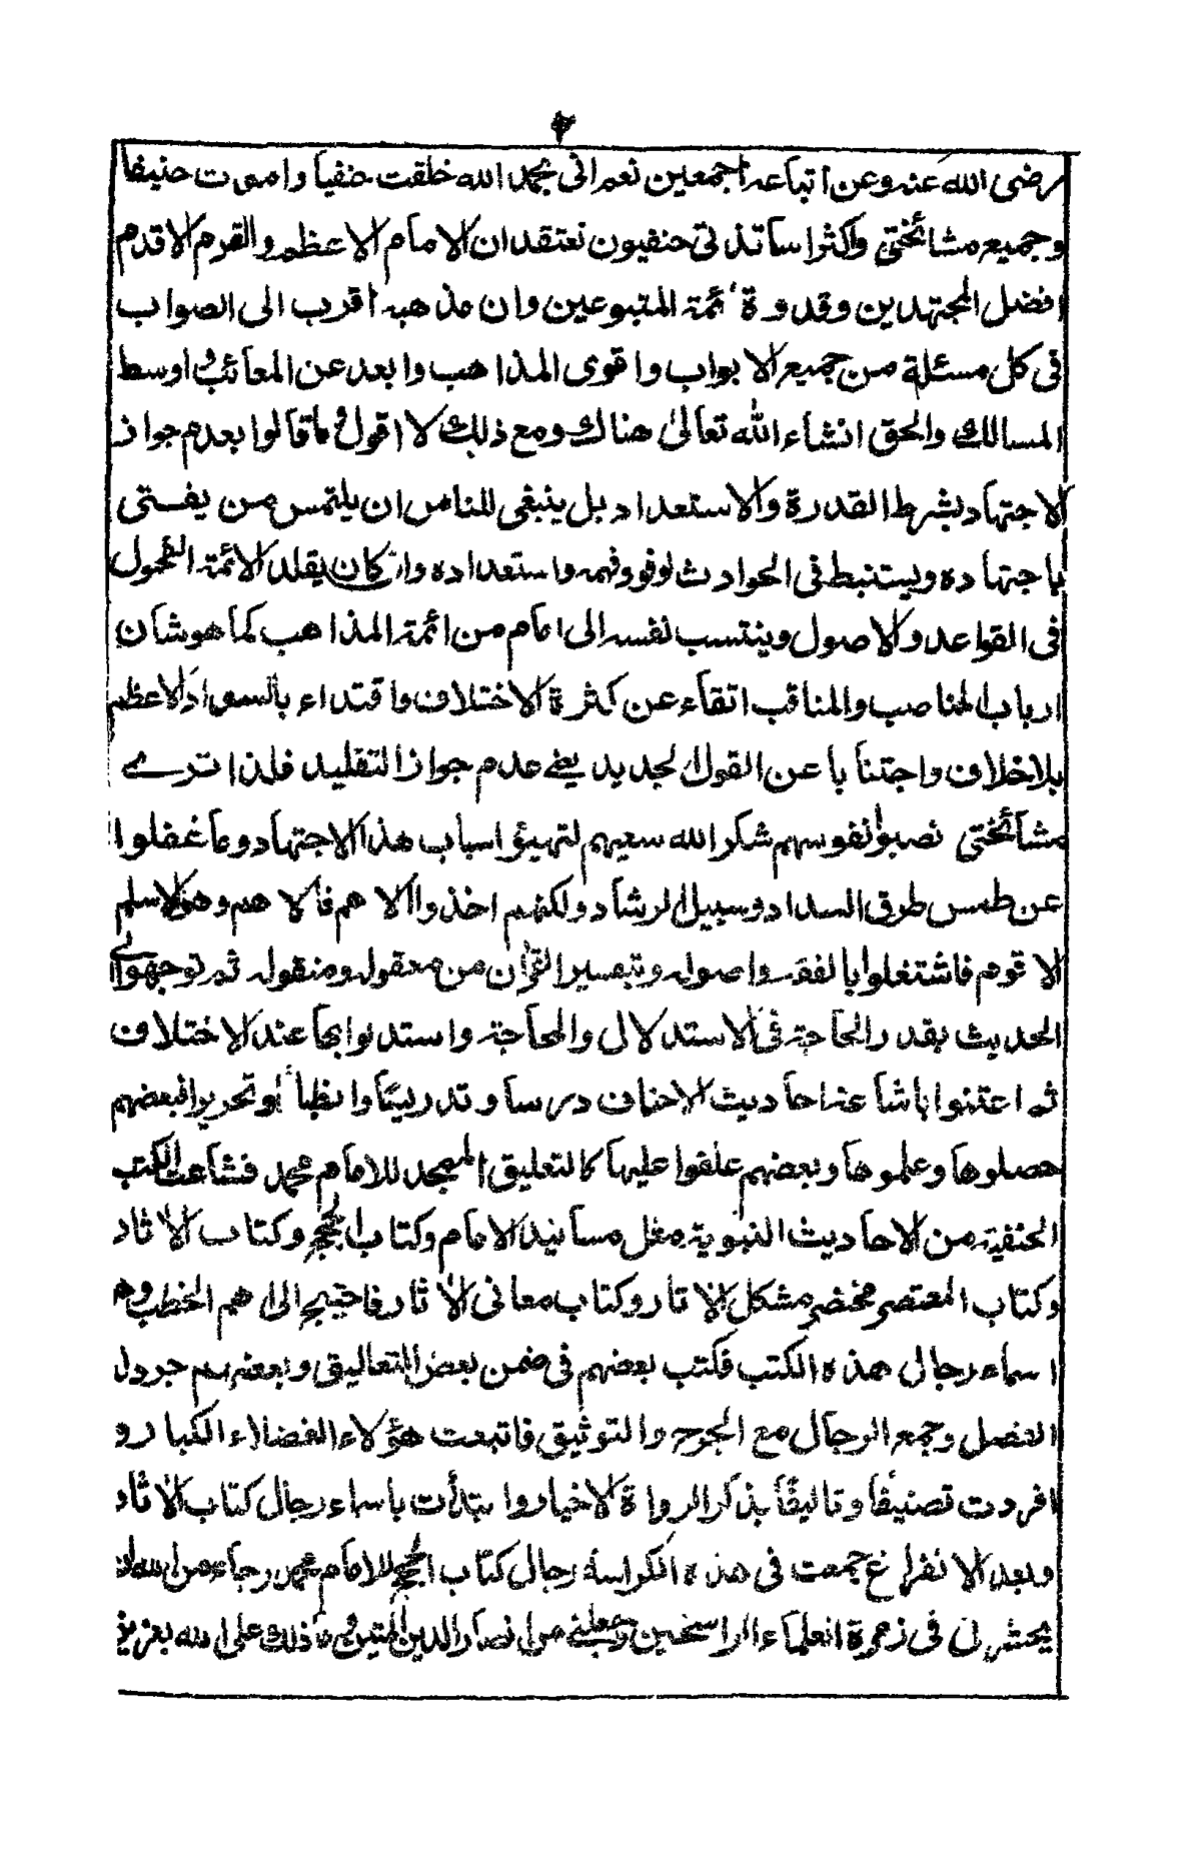 رضی الله عنه وعن اتباعه اجمعین نعم انی بحمد الله خلقت حنفیا واموت حنیفا
وجمیع مشائختی واکثر اساتذتی حنفیون نعتقد ان الامام الاعظم والقرم الاقدم
افضل المجتهدین وقدوة ائمة المتبوعین وان مذهبه اقرب الی الصواب
فی کل مسئلة من جمیع الابواب واقوی المذاهب وابعد عن المعائب واوسط
المسالک والحق انشاء الله تعالیٰ هناک ومع ذلک لا اقول ما قالوا بعدم جواز
الاجتهاد بشرط القدرة والاستعداد بل ینبغی للناس ان یلتمس من یفتی
باجتهاده ویستنبط فی الحوادث لوفور فهمه واستعداده وان کان یقلد الائمة الفحول
فی القواعد والاصول وینتسب نفسه الی امام من ائمة المذاهب کما هو شان
ارباب المناصب والمناقب اتقاء عن کثرة الاختلاف واقتداء بالسواد الاعظم
بلا خلاف واجتنابا عن القول الجدید یعنی عدم جواز التقلید فلذا ترے
مشائختی نصبوا نفوسهم شکر الله سعیهم لتهیئ اسباب هذا الاجتهاد وما غفلوا
عن طمس طرق السداد وسبیل الرشاد ولکنهم اخذوا الاهم فالاهم وهو الاسلم
الاقوم فاشتغلوا بالفقه واصوله وتبفسیر القرآن من معقوله ومنقوله ثم توجهوا الی
الحدیث بقدر الحاجة فی الاستدلال والمحاجة واستدلوا بها عند الاختلاف
ثم اعتنوا باشاعة احادیث الاحناف درسا وتدریسا وانطباعا وتحریرا فبعضهم
حصلوها وعلموها وبعضهم علقوا علیها کالتعلیق الممجد للامام محمد فشاعت الکتب
الحنفیة من الاحادیث النبویة مثل مسانید الامام وکتاب الحجج وکتاب الآثار
وکتاب المعتصر مختصر مشکل الآثار وکتاب معانی الآثار فاحتیج الی اهم الخطب وهو
اسماء رجال هذه الکتب فکتب بعضهم فی ضمن بعض التعالیق وبعضهم جردل
الفصل وجمع الرجال مع الجرح والتوثیق فاتبعت هؤلاء الفضلاء الکبار و
افردت تصنیفا وتالیفا بذکر الرواة الاخیار وابتدأت باسماء رجال کتاب الآثار
وبعد الانفراغ جمعت فی هذه الکراسة رجال کتاب الحجج للامام محمد رجاء من الله ان
یحشرنی فی زمرة العلماء الراسخین ویجعلنی من انصار الدین المتین وما ذلک علی الله بعزیز